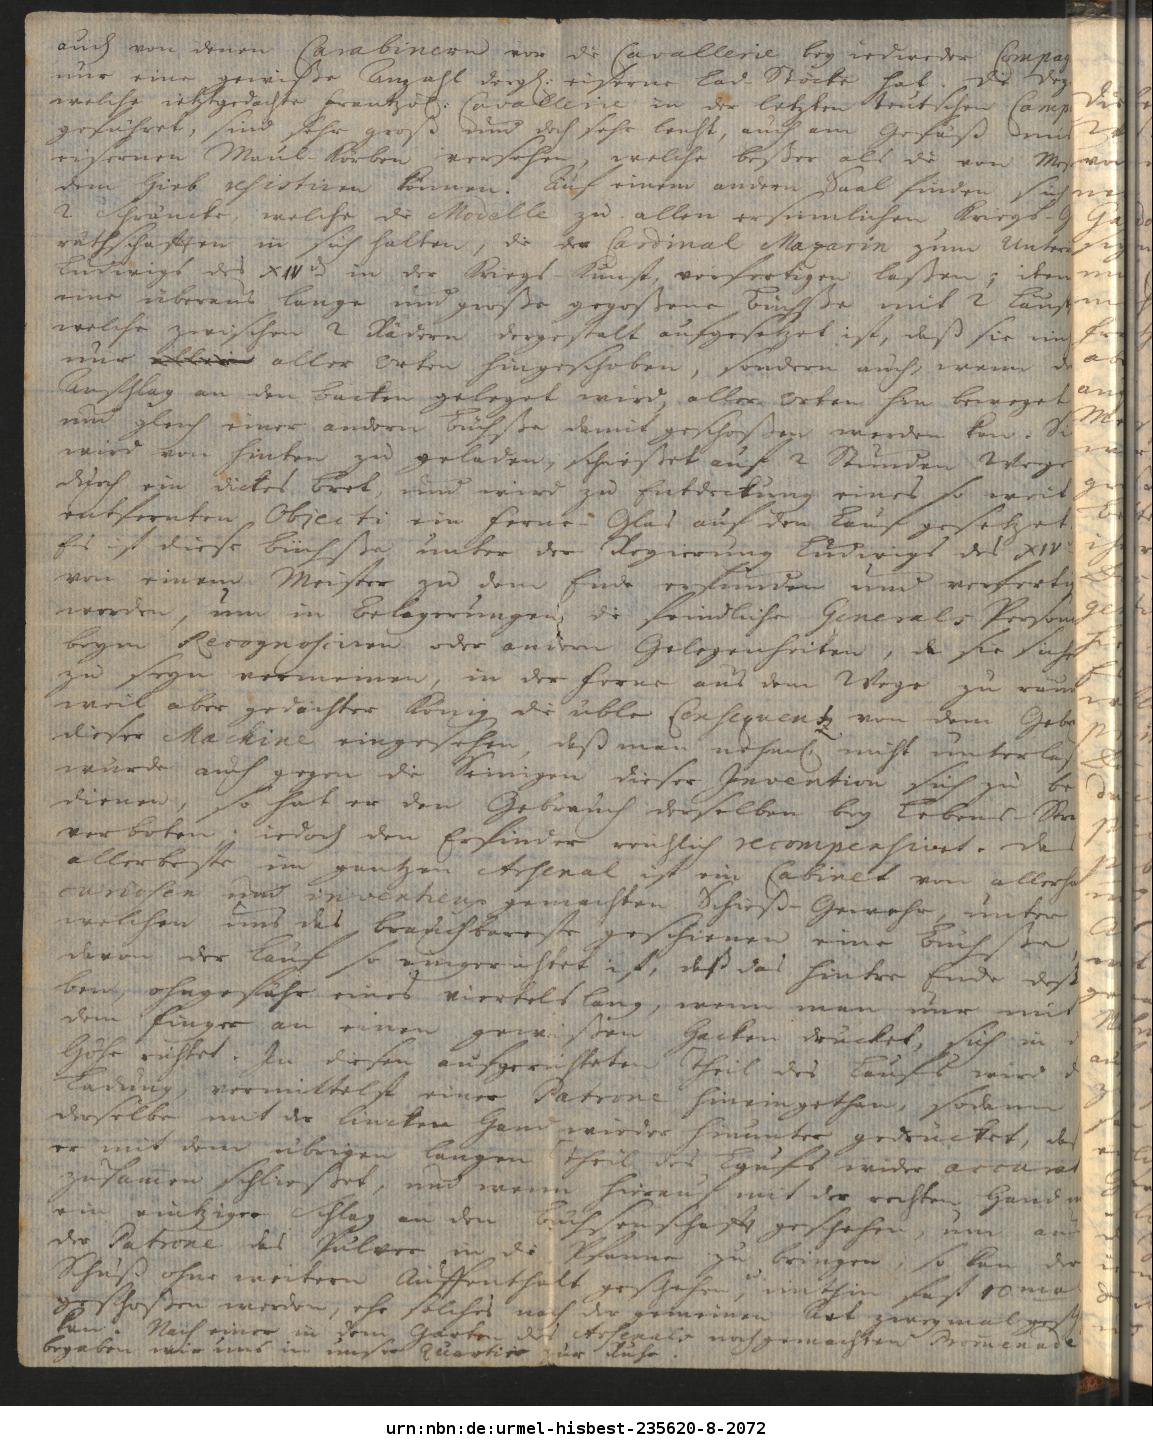 auch von denen Carabinern vor die Cavallerie bey iedweder Compag
nur eine gewiße Anzahl dergl: eiserne Lad-Stöcke hat. Die Deg
welche ietztgedachte frantzös: Cavallerie in der letzten teutschen Camp
geführet, sind sehr groß und doch sehr leicht, auch am Gefäß mit
eisernen Maul-Körben versehen, welche beßer als die von Meß
dem Hieb resistiren können. Auf einem andern Saal finden sich
2 Schräncke, welche die Modelle zu allen ersinnlichen Kriegs-G
räthschafften in sich halten, die der Cardinal Mazarin zum Unterr
Ludwigs des XIV in der Kriegs-Kunst, verfertigen laßen; item
eine überaus lange und große gegoßene Büchße mit 2 Läuff
welche zwischen 2 Rädern dergestalt aufgesetzet ist, daß sie nich
nur aller Orten hingeschoben, sondern auch, wenn de
Anschlag an den Backen geleget wird, aller Orten hin beweget
und gleich einer andern Büchße damit geschoßen werden kan. Si
wird von hinten zu geladen, schießet auf 2 Stunden Wege
durch ein dickes Bret, und wird zu Entdeckung eines so weit
entfernten Objecti ein Ferne-Glas auf den Lauf gesetzet.
Es ist diese Büchße unter der Regierung Ludwigs des XIV
von einem Meister zu dem Ende erfunden und verfertig
worden, um in Belagerungen die feindliche Generals-Person
beym Recognosciren oder andern Gelegenheiten, da sie sicher
zu seyn vermeinen, in der Ferne aus dem Wege zu räum
weil aber gedachter König die üble Consequentz von dem Gebr
dieser Machine eingesehen, daß man nehml. nicht unterlaß
wurde auch gegen die Seinigen dieser Invention sich zu be
dienen, so hat er den Gebrauch derselben bey Lebens-Str
verboten; iedoch den Erfinder reichlich recompensiret. Das
allerbeste im gantzen Arsenal ist ein Cabinet von allerha
curiosen und inventieus gemachten Schieß-Gewehr, unter
welchen uns das brauchbareste geschienen eine Büchße,
davon der Lauf so eingerichtet ist, daß das hintere Ende deß
ben, ohngefähr eines viertels lang, wenn man nur mit
dem Finger an einen gewißen Hacken drucket, sich in d
Höhe richtet. In diesen aufgerichteten Theil des Laufs wird d
Ladung, vermittelst einer Patrone hineingethan, sodann
derselbe mit der lincken Hand wieder hinunter gedrucket, daß
er mit dem übrigen langen Theil des Laufs wider accurat
zusamen schließet, und wenn hierauf mit der rechten Hand n
ein eintziger Schlag an den Büchsenschafft geschehen, um aus
der Patrone das Pulver in die Pfanne zu bringen, so kan der
Schuß ohne weitern Auffenthalt geschehen, mithin fast 10 ma
geschoßen werden, ehe solches nach der gemeinen Art zweymal gesch
kan. Nach einer in dem Garten des Arsenals nochgemachten Promenade
begaben wir uns in unser Quartier zur Ruhe.
urn:nbn:de:urmel-hisbest-235620-8-2072